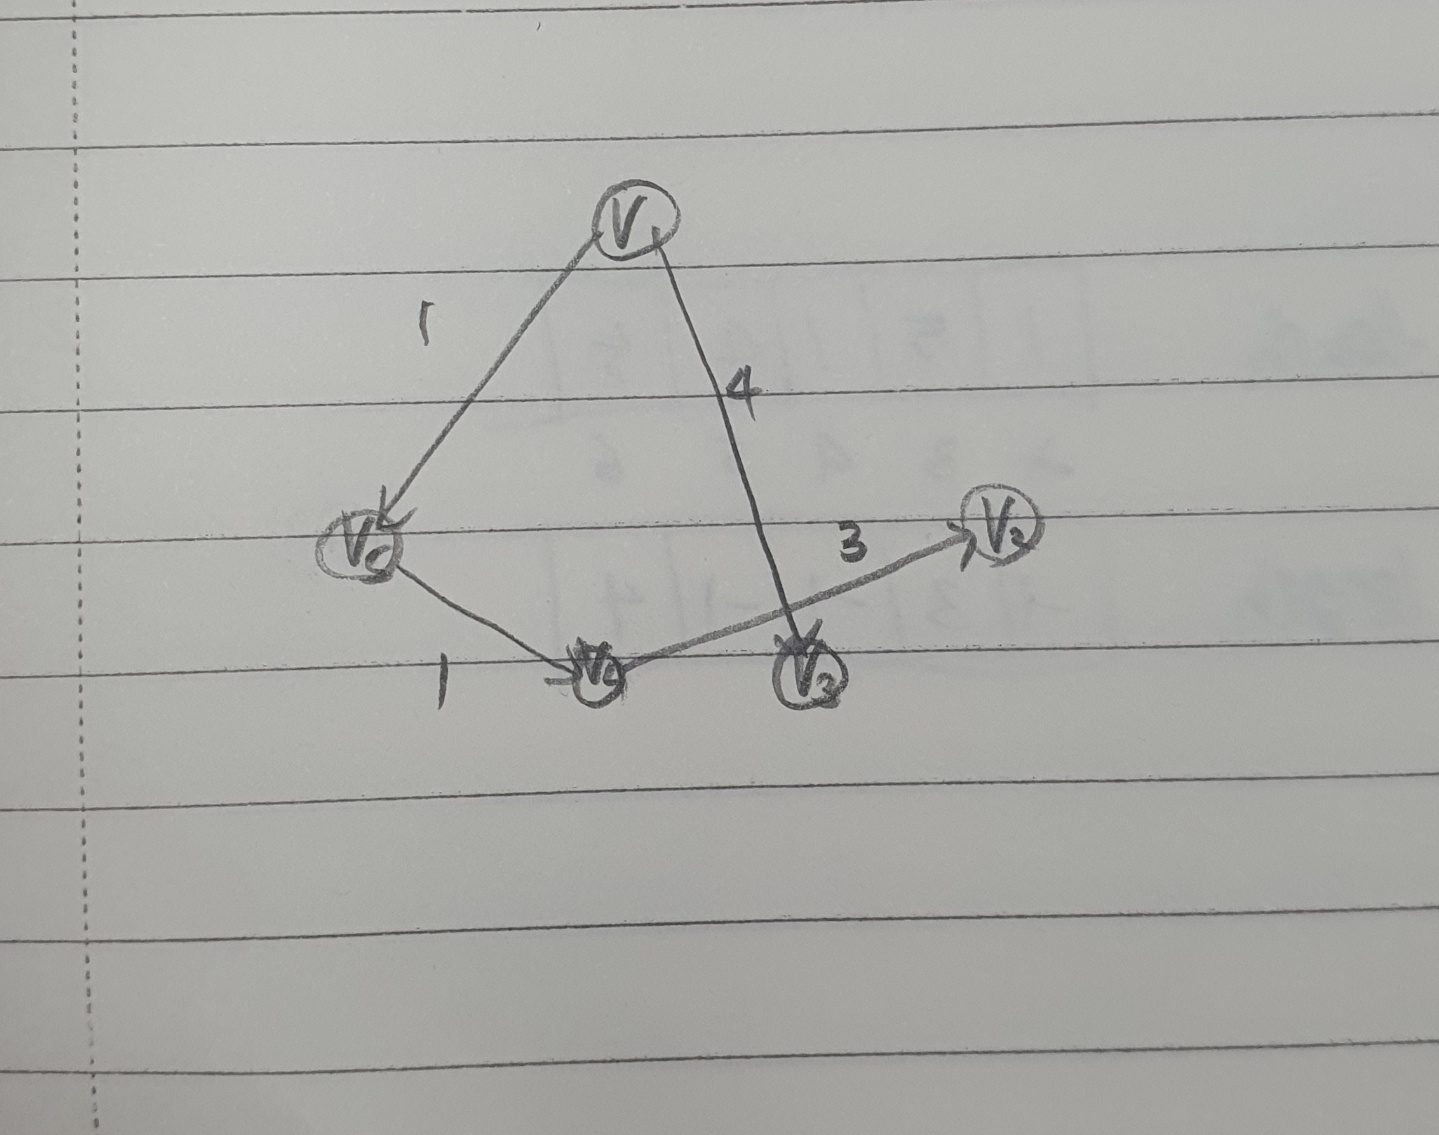 V₁
1
4
V₀
3
V₂
1
V₄
V₃